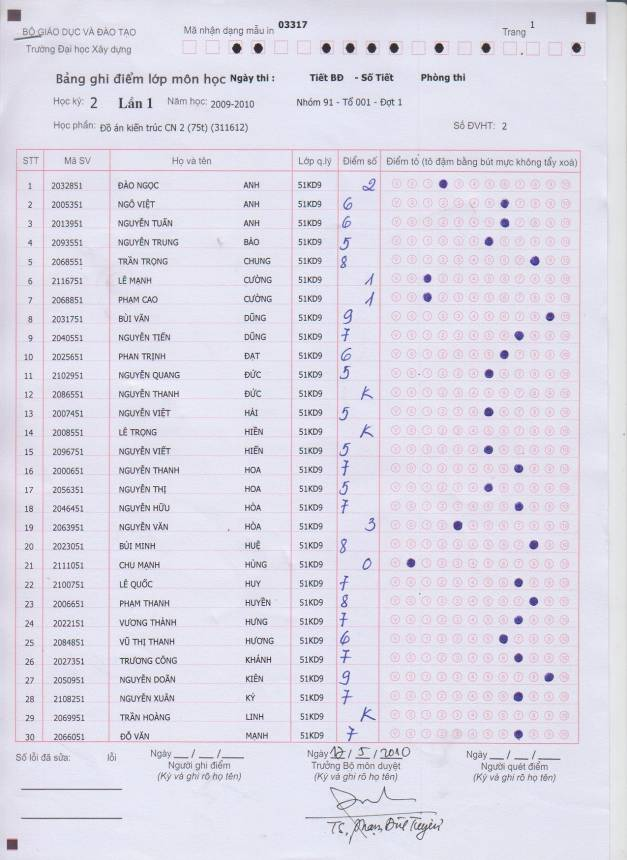 BỘ GIÁO DỤC VÀ ĐÀO TẠO
Trường Đại học Xây dựng
Mã nhận dạng mẫu in 03317
Trang 1
Bảng ghi điểm lớp môn học Ngày thi : Tiết BĐ - Số Tiết Phòng thi
Học kỳ: 2 Lần 1 Năm học: 2009-2010 Nhóm 91 - Tổ 001 - Đợt 1
Học phần: Đồ án kiến trúc CN 2 (75t) (311612) Số ĐVHT: 2
STT Mã SV Họ và tên Lớp q.lý Điểm số Điểm tô (tô đậm bằng bút mực không tẩy xoá)
1 2032851 ĐÀO NGỌC ANH 51KD9 2
2 2005351 NGÔ VIỆT ANH 51KD9 6
3 2013951 NGUYỄN TUẤN ANH 51KD9 6
4 2093551 NGUYỄN TRUNG BẢO 51KD9 5
5 2068551 TRẦN TRỌNG CHUNG 51KD9 8
6 2116751 LÊ MẠNH CƯỜNG 51KD9 1
7 2068851 PHẠM CAO CƯỜNG 51KD9 1
8 2031751 BÙI VĂN DŨNG 51KD9 9
9 2040551 NGUYỄN TIẾN DŨNG 51KD9 7
10 2025651 PHAN TRỊNH ĐẠT 51KD9 6
11 2102951 NGUYỄN QUANG ĐỨC 51KD9 5
12 2086551 NGUYỄN THANH ĐỨC 51KD9 K
13 2007451 NGUYỄN VIỆT HẢI 51KD9 5
14 2008551 LÊ TRỌNG HIỀN 51KD9 K
15 2096751 NGUYỄN VIẾT HIẾN 51KD9 5
16 2000651 NGUYỄN THANH HOA 51KD9 7
17 2056351 NGUYỄN THỊ HOA 51KD9 5
18 2046451 NGUYỄN HỮU HÒA 51KD9 7
19 2063951 NGUYỄN VĂN HÒA 51KD9 3
20 2023051 BÙI MINH HUỆ 51KD9 8
21 2111051 CHU MẠNH HÙNG 51KD9 0
22 2100751 LÊ QUỐC HUY 51KD9 7
23 2006651 PHẠM THANH HUYỀN 51KD9 8
24 2022151 VƯƠNG THÀNH HƯNG 51KD9 7
25 2084851 VŨ THỊ THANH HƯƠNG 51KD9 6
26 2027351 TRƯƠNG CÔNG KHÁNH 51KD9 7
27 2050951 NGUYỄN DOÃN KIÊN 51KD9 9
28 2108251 NGUYỄN XUÂN KỲ 51KD9 7
29 2069951 TRẦN HOÀNG LINH 51KD9 K
30 2066051 ĐỖ VĂN MẠNH 51KD9 7
Số lỗi đã sửa: lỗi Ngày __/__/__ Ngày 12/5/2010 Ngày __/__/__
Người ghi điểm Trưởng Bộ môn duyệt Người quét điểm
(Ký và ghi rõ họ tên) (Ký và ghi rõ họ tên) (Ký và ghi rõ họ tên)
TS. Phạm